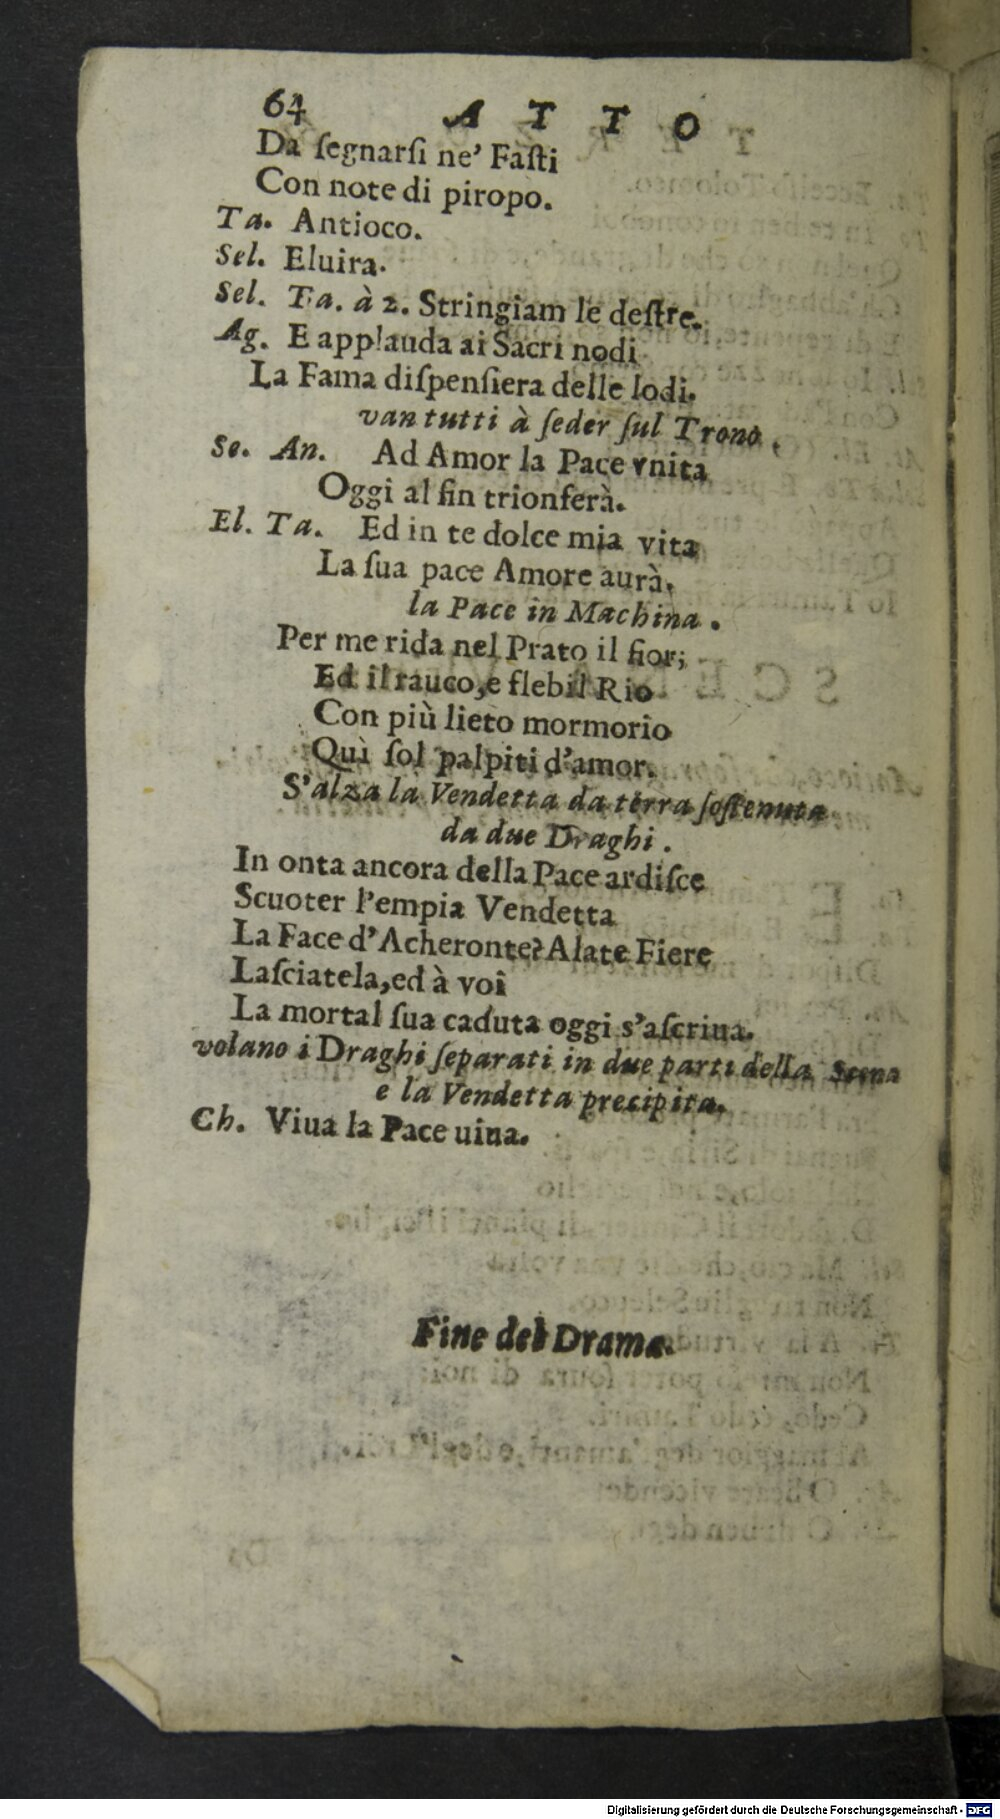 64 ATTO
Da ſegnarſi ne' Faſti
Con note di piropo.
Ta. Antioco.
Sel. Eluira.
Sel. Ta. à 2. Stringiam le deſtre.
Ag. E applauda ai Sacri nodi
La Fama diſpenſiera delle lodi.
van tutti à ſeder ſul Trono.
Se. An. Ad Amor la Pace vnita
Oggi al fin trionferà.
El. Ta. Ed in te dolce mia vita
La ſua pace Amore aurà.
la Pace in Machina.
Per me rida nel Prato il fior;
Ed il rauco, e flebil Rio
Con più lieto mormorio
Quì ſol palpiti d'amor.
S'alza la Vendetta da terra ſoſtenuta
da due Draghi.
In onta ancora della Pace ardiſce
Scuoter l'empia Vendetta
La Face d'Acheronte? Alate Fiere
Laſciatela, ed à voi
La mortal ſua caduta oggi s'aſcriua.
volano i Draghi ſeparati in due parti della Scena
e la Vendetta precipita.
Ch. Viua la Pace uiua.
Fine del Drama.
Digitalisierung gefördert durch die Deutsche Forschungsgemeinschaft - DFG